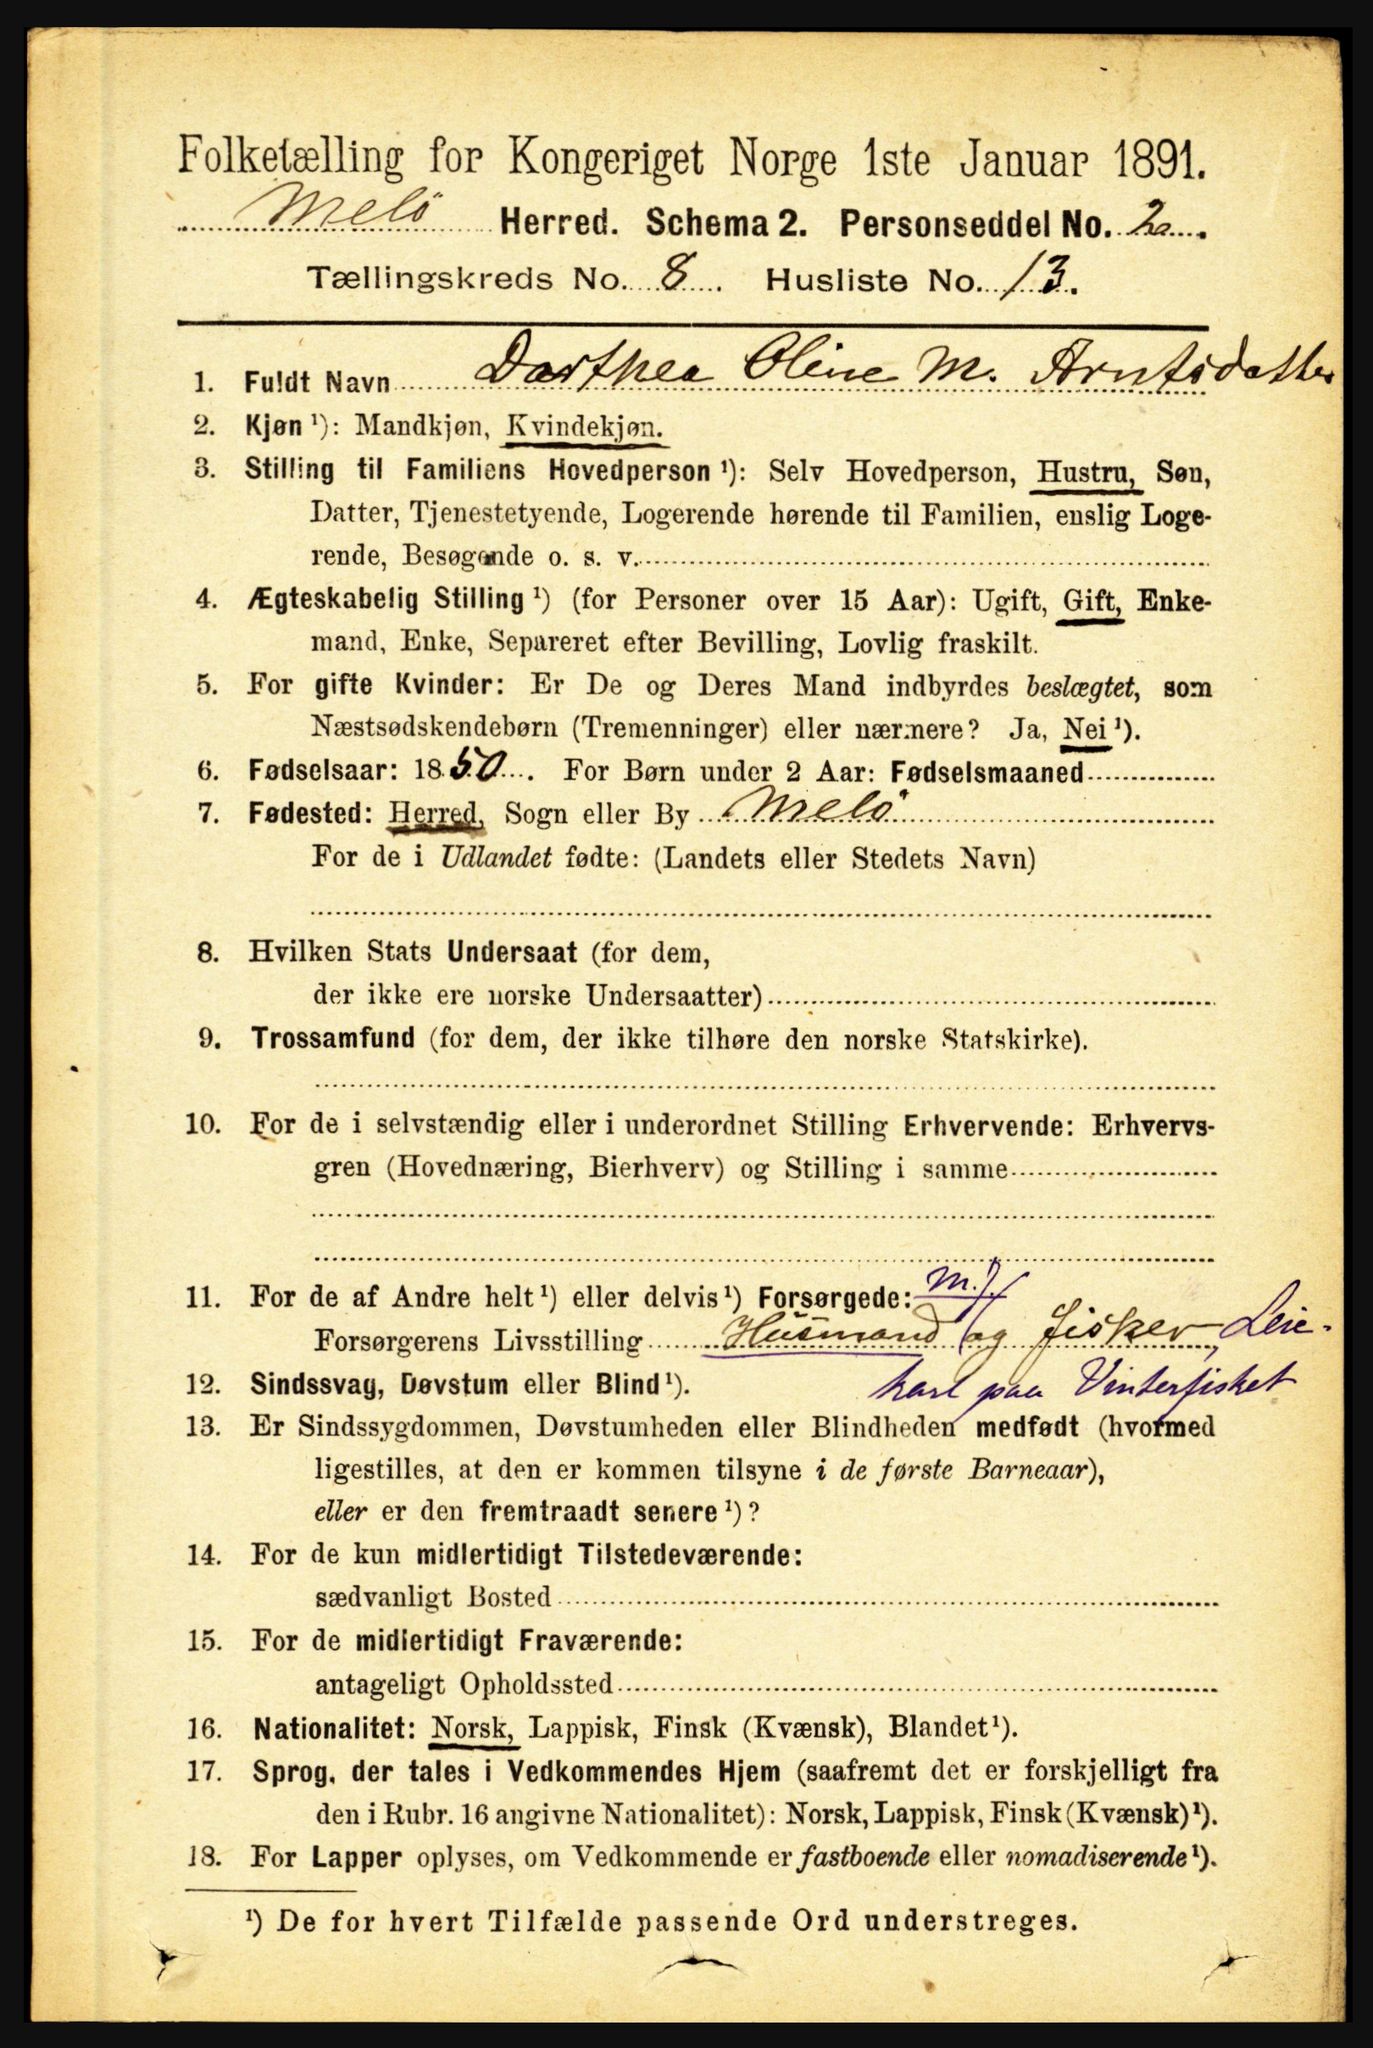 Folketælling for Kongeriget Norge 1ste Januar 1891.
Melö Herred. Schema 2. Personseddel No. 2.
Tællingskreds No. 8. Husliste No. 13.
1. Fuldt Navn Dorthea Oline M. Arntsdatter
2. Kjøn ¹): Mandkjøn, Kvindekjøn.
3. Stilling til Familiens Hovedperson ¹): Selv Hovedperson, Hustru, Søn,
Datter, Tjenestetyende, Logerende hørende til Familien, enslig Loge-
rende, Besøgende o. s. v.
4. Ægteskabelig Stilling ¹) (for Personer over 15 Aar): Ugift, Gift, Enke-
mand, Enke, Separeret efter Bevilling, Lovlig fraskilt.
5. For gifte Kvinder: Er De og Deres Mand indbyrdes beslægtet, som
Næstsødskendebørn (Tremenninger) eller nærmere? Ja, Nei ¹).
6. Fødselsaar: 1850. For Børn under 2 Aar: Fødselsmaaned
7. Fødested: Herred, Sogn eller By Melö
For de i Udlandet fødte: (Landets eller Stedets Navn)
8. Hvilken Stats Undersaat (for dem,
der ikke ere norske Undersaatter)
9. Trossamfund (for dem, der ikke tilhøre den norske Statskirke).
10. For de i selvstændig eller i underordnet Stilling Erhvervende: Erhvervs-
gren (Hovednæring, Bierhverv) og Stilling i samme
11. For de af Andre helt ¹) eller delvis ¹) Forsørgede: m. j.
Forsørgerens Livsstilling Husmand og fisker, Leie-
12. Sindssvag, Døvstum eller Blind ¹). karl paa Vinterfisket
13. Er Sindssygdommen, Døvstumheden eller Blindheden medfødt (hvormed
ligestilles, at den er kommen tilsyne i de første Barneaar),
eller er den fremtraadt senere ¹)?
14. For de kun midlertidigt Tilstedeværende:
sædvanligt Bosted
15. For de midlertidigt Fraværende:
antageligt Opholdssted
16. Nationalitet: Norsk, Lappisk, Finsk (Kvænsk), Blandet ¹).
17. Sprog, der tales i Vedkommendes Hjem (saafremt det er forskjelligt fra
den i Rubr. 16 angivne Nationalitet): Norsk, Lappisk, Finsk (Kvænsk) ¹).
18. For Lapper oplyses, om Vedkommende er fastboende eller nomadiserende ¹).
¹) De for hvert Tilfælde passende Ord understreges.